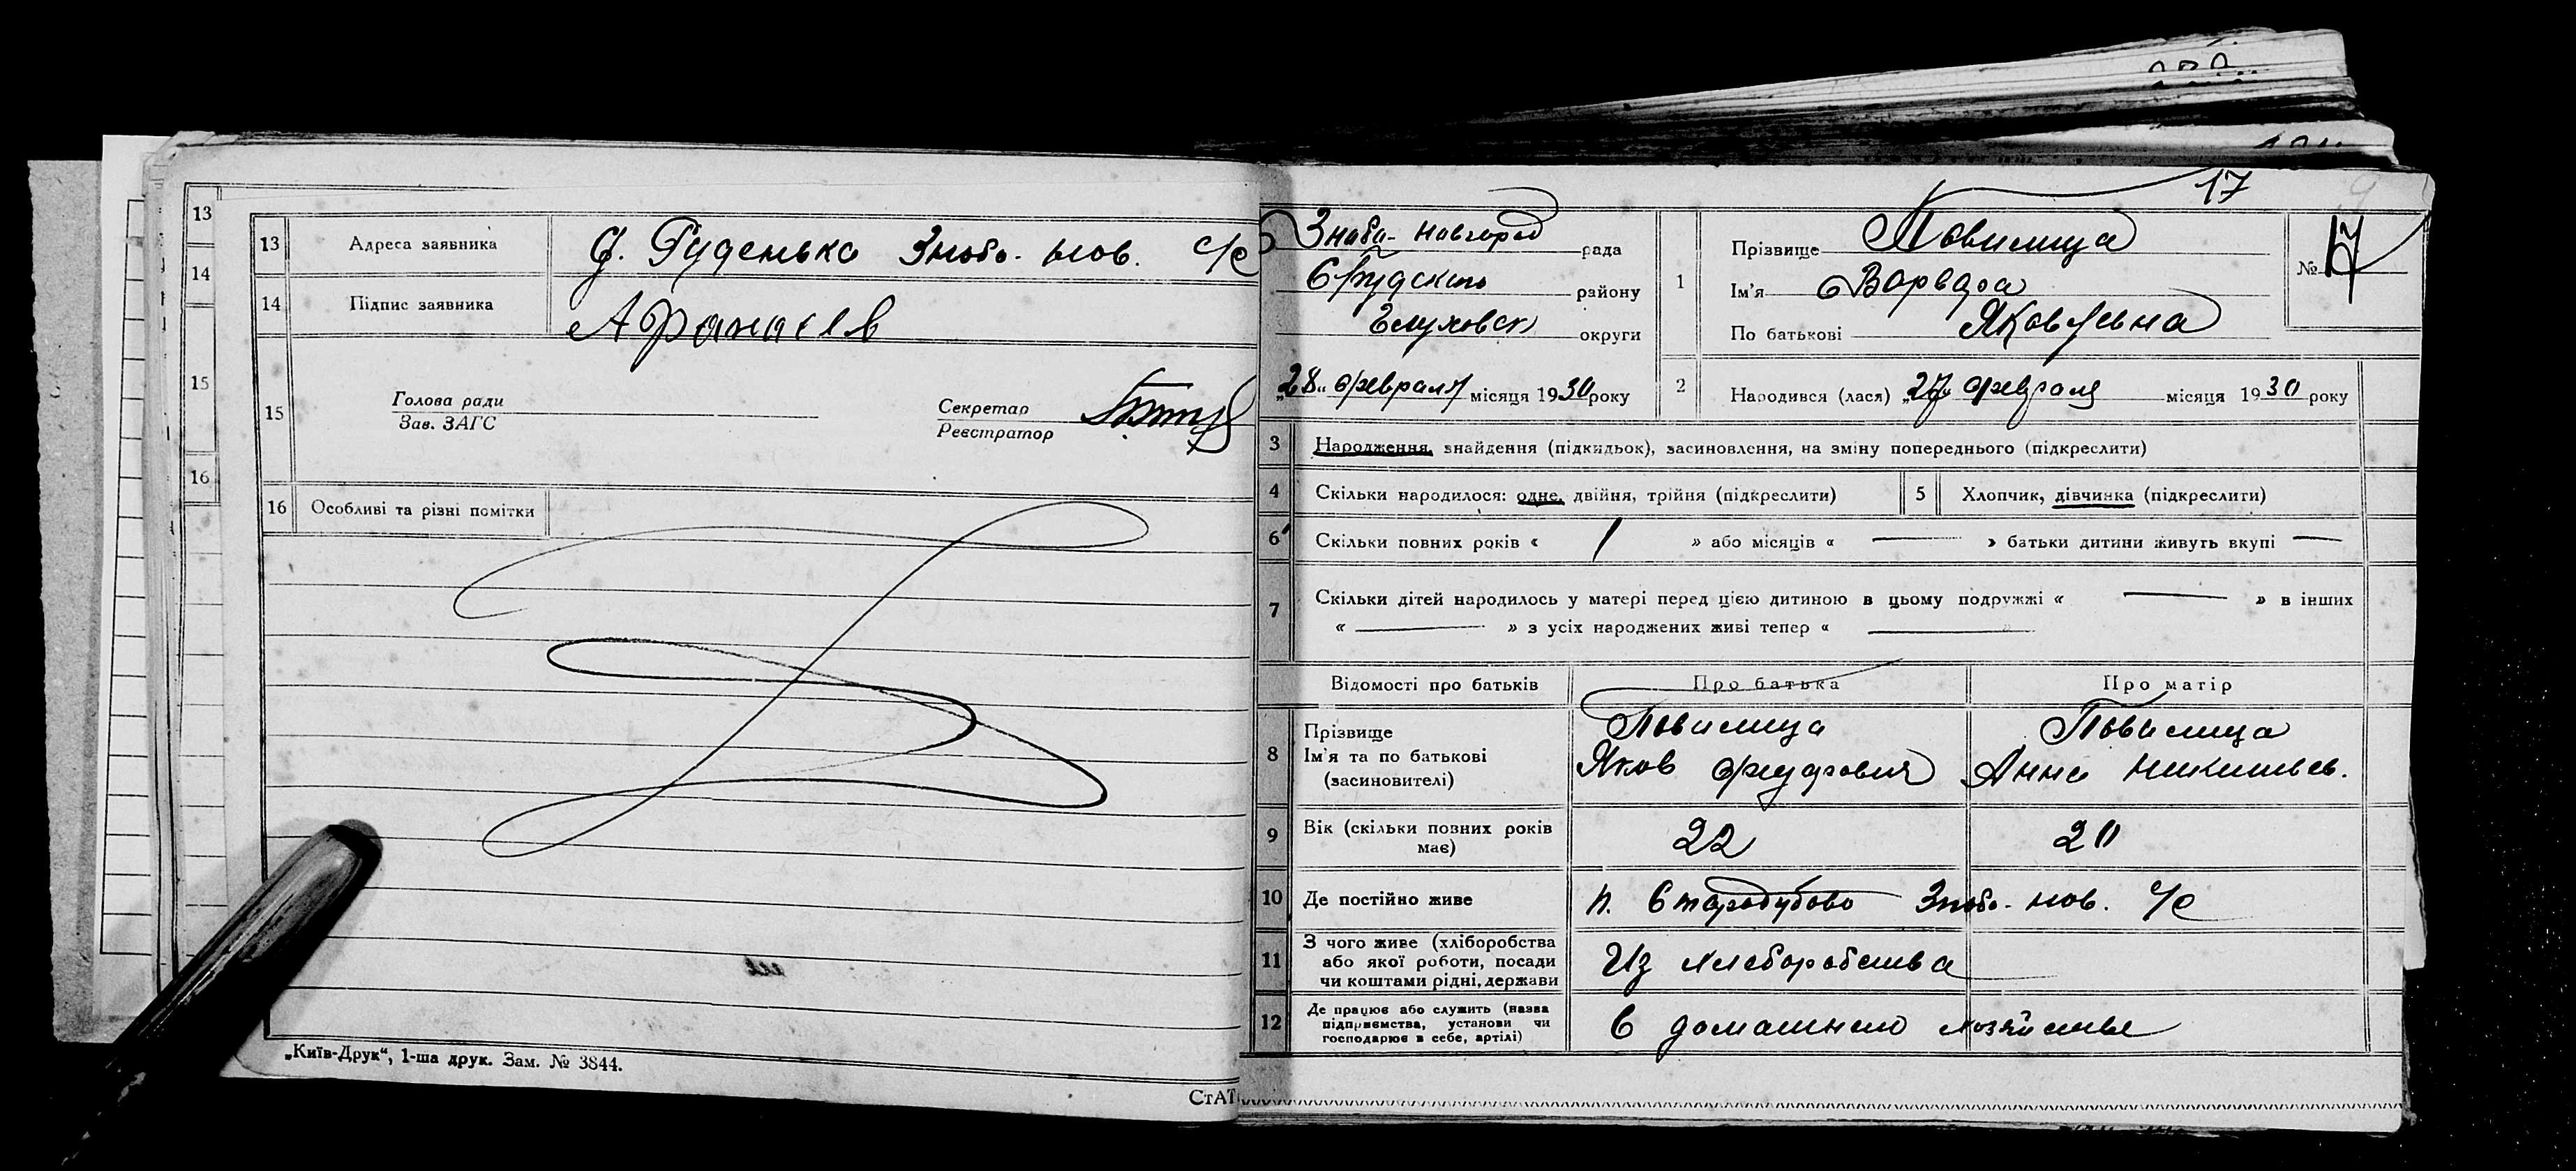 13
14
15
16
13 Адреса заявника д. Руденька Знобо- Нов. с/с
14 Підпис заявника Афанасев
15 Голова ради
Зав. ЗАГС
Секретар
Реєстратор
16 Особливі та різні помітки
„Київ-Друк“, 1-ша друк. Зам. № 3844.
СтАТ
17
Зноби- Новгород рада
району
Глуховск округи
„28“ февраля місяця 1930 року
1 Прізвище Повилица
Ім'я Варвара
По батькові Яковлевна
№ 17
2 Народився (лася) „27“ февраля місяця 1930 року
3 Народження, знайдення (підкидьок), засиновлення, на зміну попереднього (підкреслити)
4 Скільки народилося: одне, двійня, трійня (підкреслити)
5 Хлопчик, дівчинка (підкреслити)
6 Скільки повних років « 1 » або місяців « — » батьки дитини живуть вкупі —
7 Скільки дітей народилось у матері перед цією дитиною в цьому подружжі « — » в інших
« — » з усіх народжених живі тепер « — »
Відомості про батьків Про батька Про матір
8 Прізвище
Ім'я та по батькові
(засиновителі)
Повилица
Яков
Повилица
Анна
9 Вік (скільки повних років
має)
22
20
10 Де постійно живе п. Стародубово Знобо- Нов. с/с
11 З чого живе (хліборобства
або якої роботи, посади
чи коштами рідні, держави
Из хлеборобства
12 Де працює або служить (назва
підприємства, установи чи
господарює в себе, артілі)
в домашнем хозяйстве